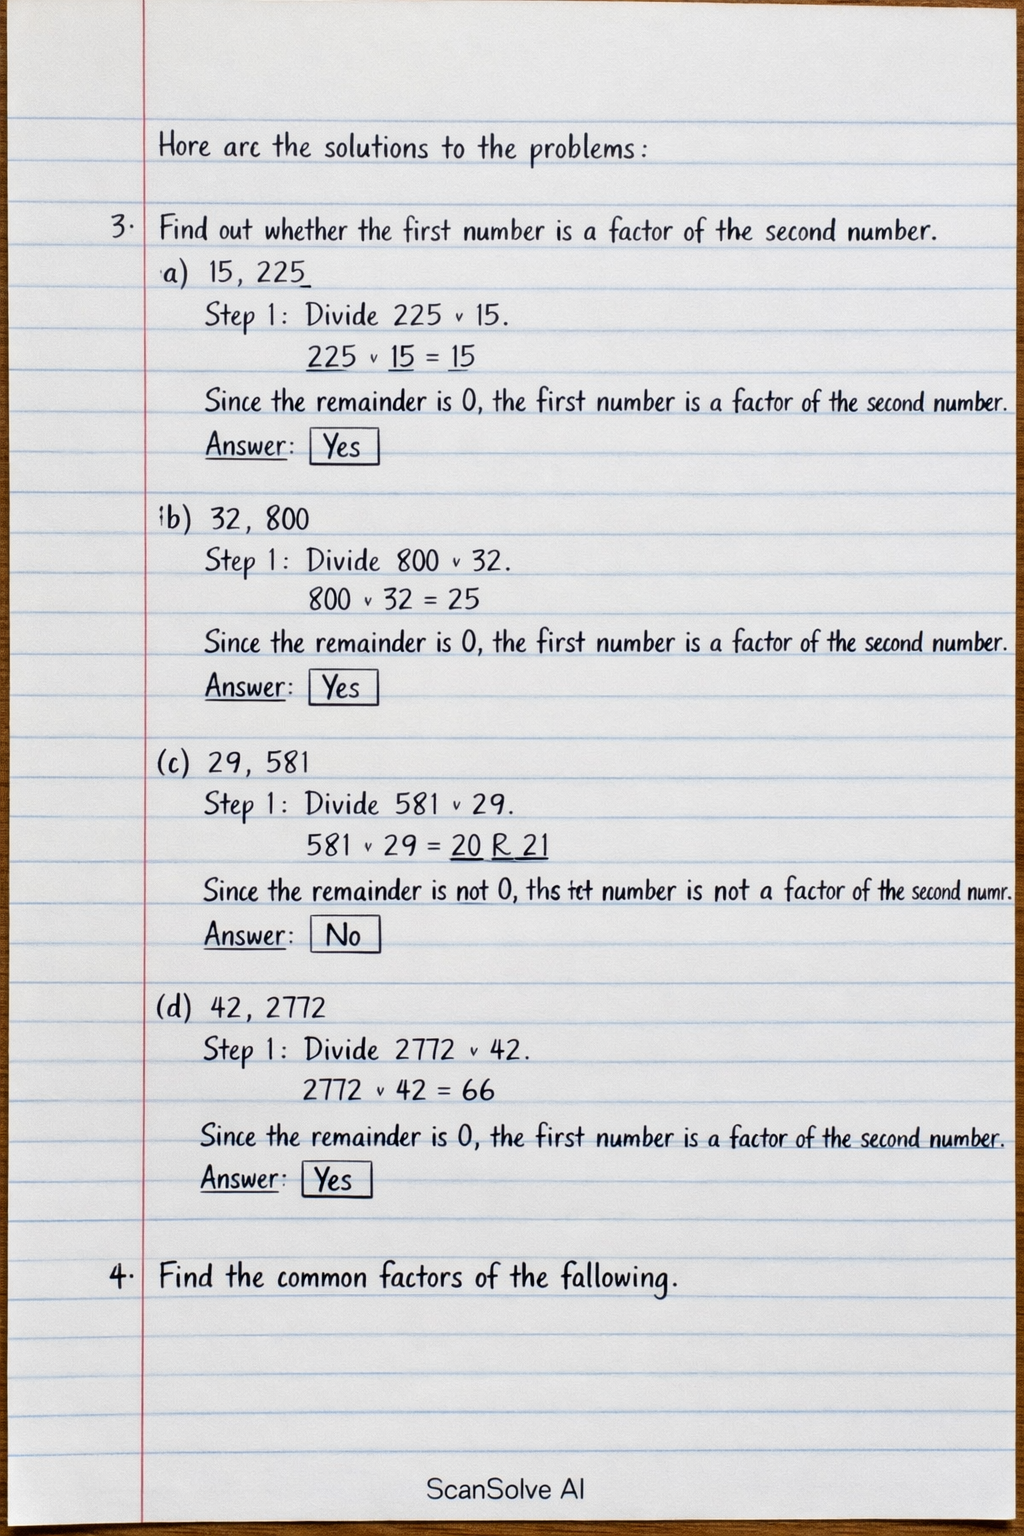 Hore arc the solutions to the problems:
3. Find out whether the first number is a factor of the second number.
a) 15, 225_
Step 1: Divide 225 v 15.
225 v 15 = 15
Since the remainder is 0, the first number is a factor of the second number.
Answer: Yes
b) 32, 800
Step 1: Divide 800 v 32.
800 v 32 = 25
Since the remainder is 0, the first number is a factor of the second number.
Answer: Yes
(c) 29, 581
Step 1: Divide 581 v 29.
581 v 29 = 20 R 21
Since the remainder is not 0, ths tet number is not a factor of the second numr.
Answer: No
(d) 42, 2772
Step 1: Divide 2772 v 42.
2772 v 42 = 66
Since the remainder is 0, the first number is a factor of the second number.
Answer: Yes
4. Find the common factors of the fallowing.
ScanSolve AI